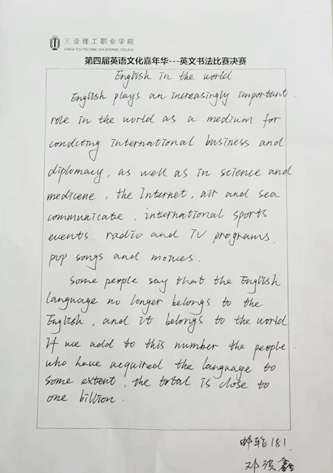 三亚理工职业学院
SANYA POLYTECHNIC VOCATIONAL COLLEGE
第四届英语文化嘉年华---英文书法比赛决赛
English in the world
English plays an increasingly important
role in the world as a medium for
condcting international business and
diplomacy, as well as in science and
medicene, the Internet, air and sea
communicate, international sports
events. radio and TV programs.
pop songs and movies.
Some people say that the English
language no longer belongs to the
English, and it belongs to the world
If we add to this number the people
who have acquired the language to
some extent, the total is close to
one billion.
邮轮181
邓俊鑫